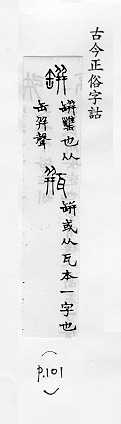 古今正俗字詁
缾 缾罋也从
缶幷聲
瓶 缾或从瓦本一字也
(P.101)